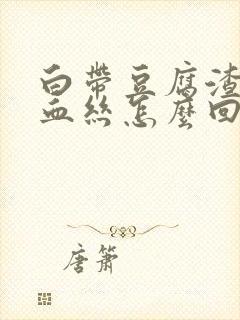 白帶豆腐渣
血絲怎麼回
唐簫